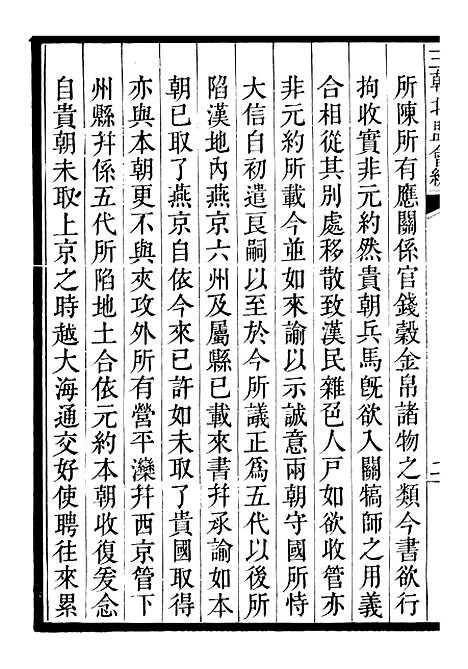 三朝北盟會編
二
所陳所有應關係官錢穀金帛諸物之類今書欲行
拘收實非元約然貴朝兵馬旣欲入關犒師之用義
合相從其別處移散致漢民雜色人戸如欲收管亦
非元約所載今並如來諭以示誠意兩朝守國所恃
大信自初遣良嗣以至於今所議正爲五代以後所
陷漢地內燕京六州及屬縣已載來書幷承諭如本
朝已取了燕京自依今來已許如未取了貴國取得
亦與本朝更不與夾攻外所有營平灤幷西京管下
州縣幷係五代所陷地土合依元約本朝收復爰念
自貴朝未取上京之時越大海通交好使聘往來累